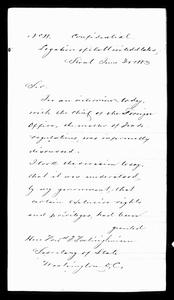 Confidential
Legation of the United States,
Seoul June 21 1883
Sir.
In an interview today,
with the Chief of the Foreign
Office, the matter of Trade
regulations, was informally
discussed.
I took the occasion to say,
that it was understood
by my government, that
certain exclusive rights
and privileges, had been
granted
Hon. Fred. T. Frelinghuysen
Secretary of State
Washington D.C.